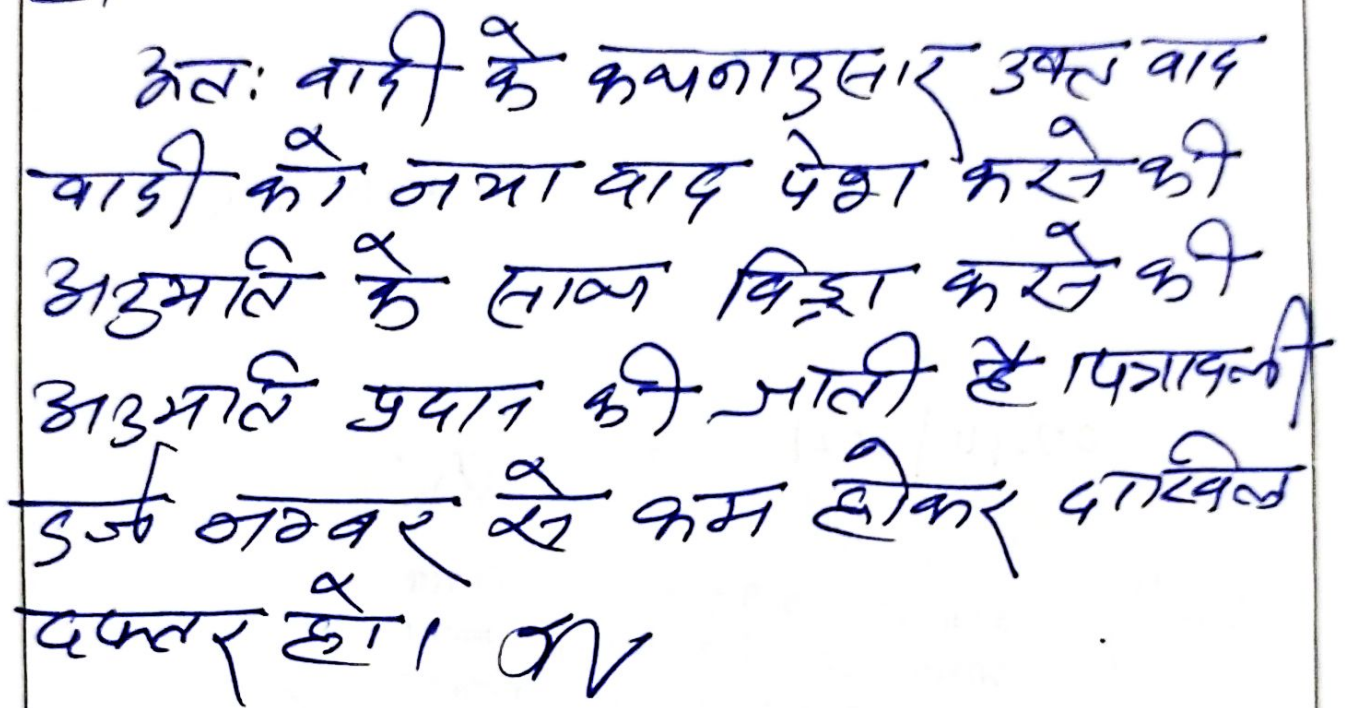 अतः वादी के कथनानुसार उक्त वाद
वादी को नया वाद पेश करने की
अनुमति के साथ विड्रा करने की
अनुमति प्रदान की जाती है । पत्रावली
दर्ज नम्बर से कम होकर दाखिल
दफ्तर हो ।